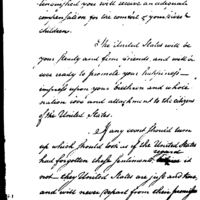 you will receive an adequate
compensation for the comfort of your wives &
children.
The United States will be
your steady and firm friends, and will e-
ver ready to promote your happiness —
impress upon your brethren and whole
nation love and attachment to the citizens
of the United States.
If any event should turn
up which should look as if the United States
had forgotten these sentiments,
not — the United States are just and
and will never depart from their promises